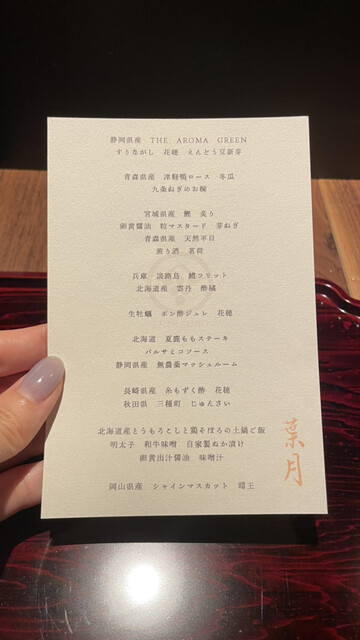 静岡県産　THE AROMA GREEN
すりながし　花穂　えんどう豆新芽
青森県産　津軽鴨ロース　冬瓜
九条ねぎのお椀
宮城県産　鰹　炙り
卵黄醤油　粒マスタード　芽ねぎ
青森県産　天然平目
煎り酒　茗荷
兵庫　淡路島　鱧フリット
北海道産　雲丹　酢橘
生牡蠣　ポン酢ジュレ　花穂
北海道　夏鹿ももステーキ
バルサミコソース
静岡県産　無農薬マッシュルーム
長崎県産　糸もずく酢　花穂
秋田県　三種町　じゅんさい
北海道産とうもろこしと鶏そぼろの土鍋ご飯
明太子　和牛味噌　自家製ぬか漬け
卵黄出汁醤油　味噌汁
岡山県産　シャインマスカット　晴王
葉月